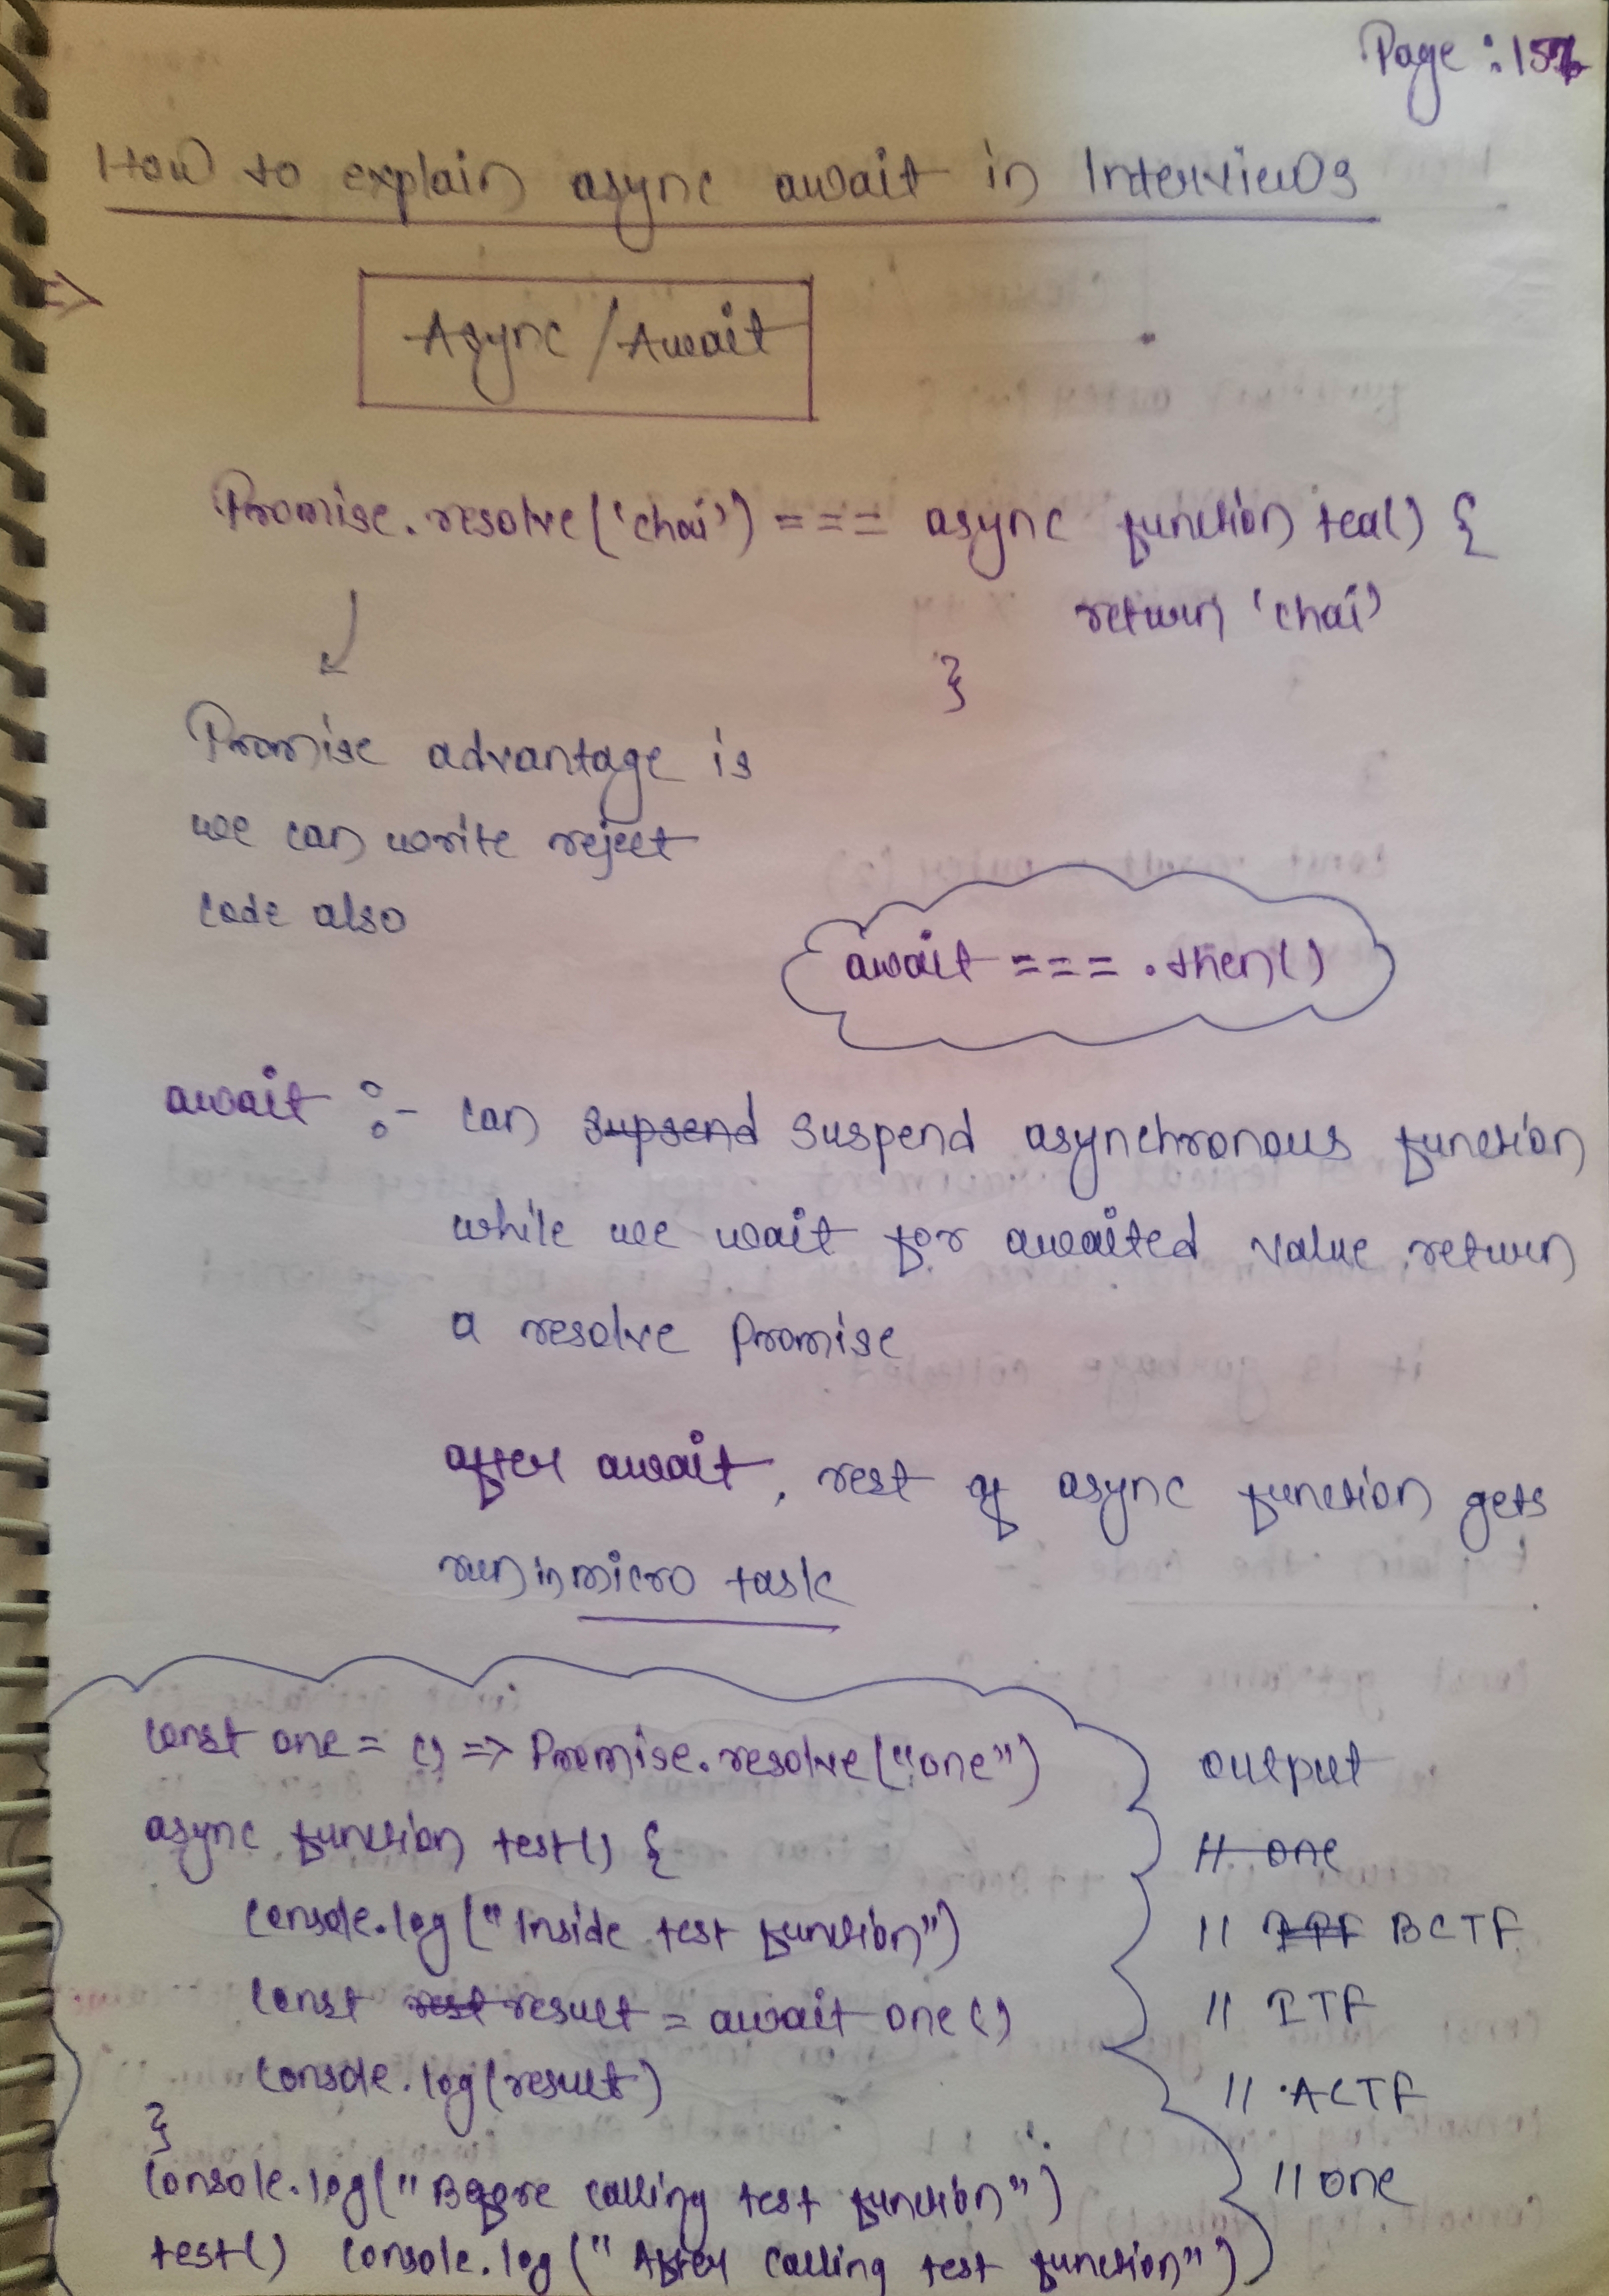 Page : 157
How to explain async await in Interviews
⇒
Async / Await
Promise.resolve('chai') === async function tea() {
return 'chai'
}
Promise advantage is
we can write reject
code also
await === .then()
await :- can supsend suspend asynchronous function
while we wait for awaited value return
a resolve Promise
after await, rest of async function gets
run in micro task
const one = () => Promise.resolve("one")
async function test() {
console.log("Inside test function")
const rest result = await one()
console.log(result)
}
console.log("Before calling test function")
test() console.log("After calling test function")
output
// one
// BCTF
// ITF
// ACTF
// one